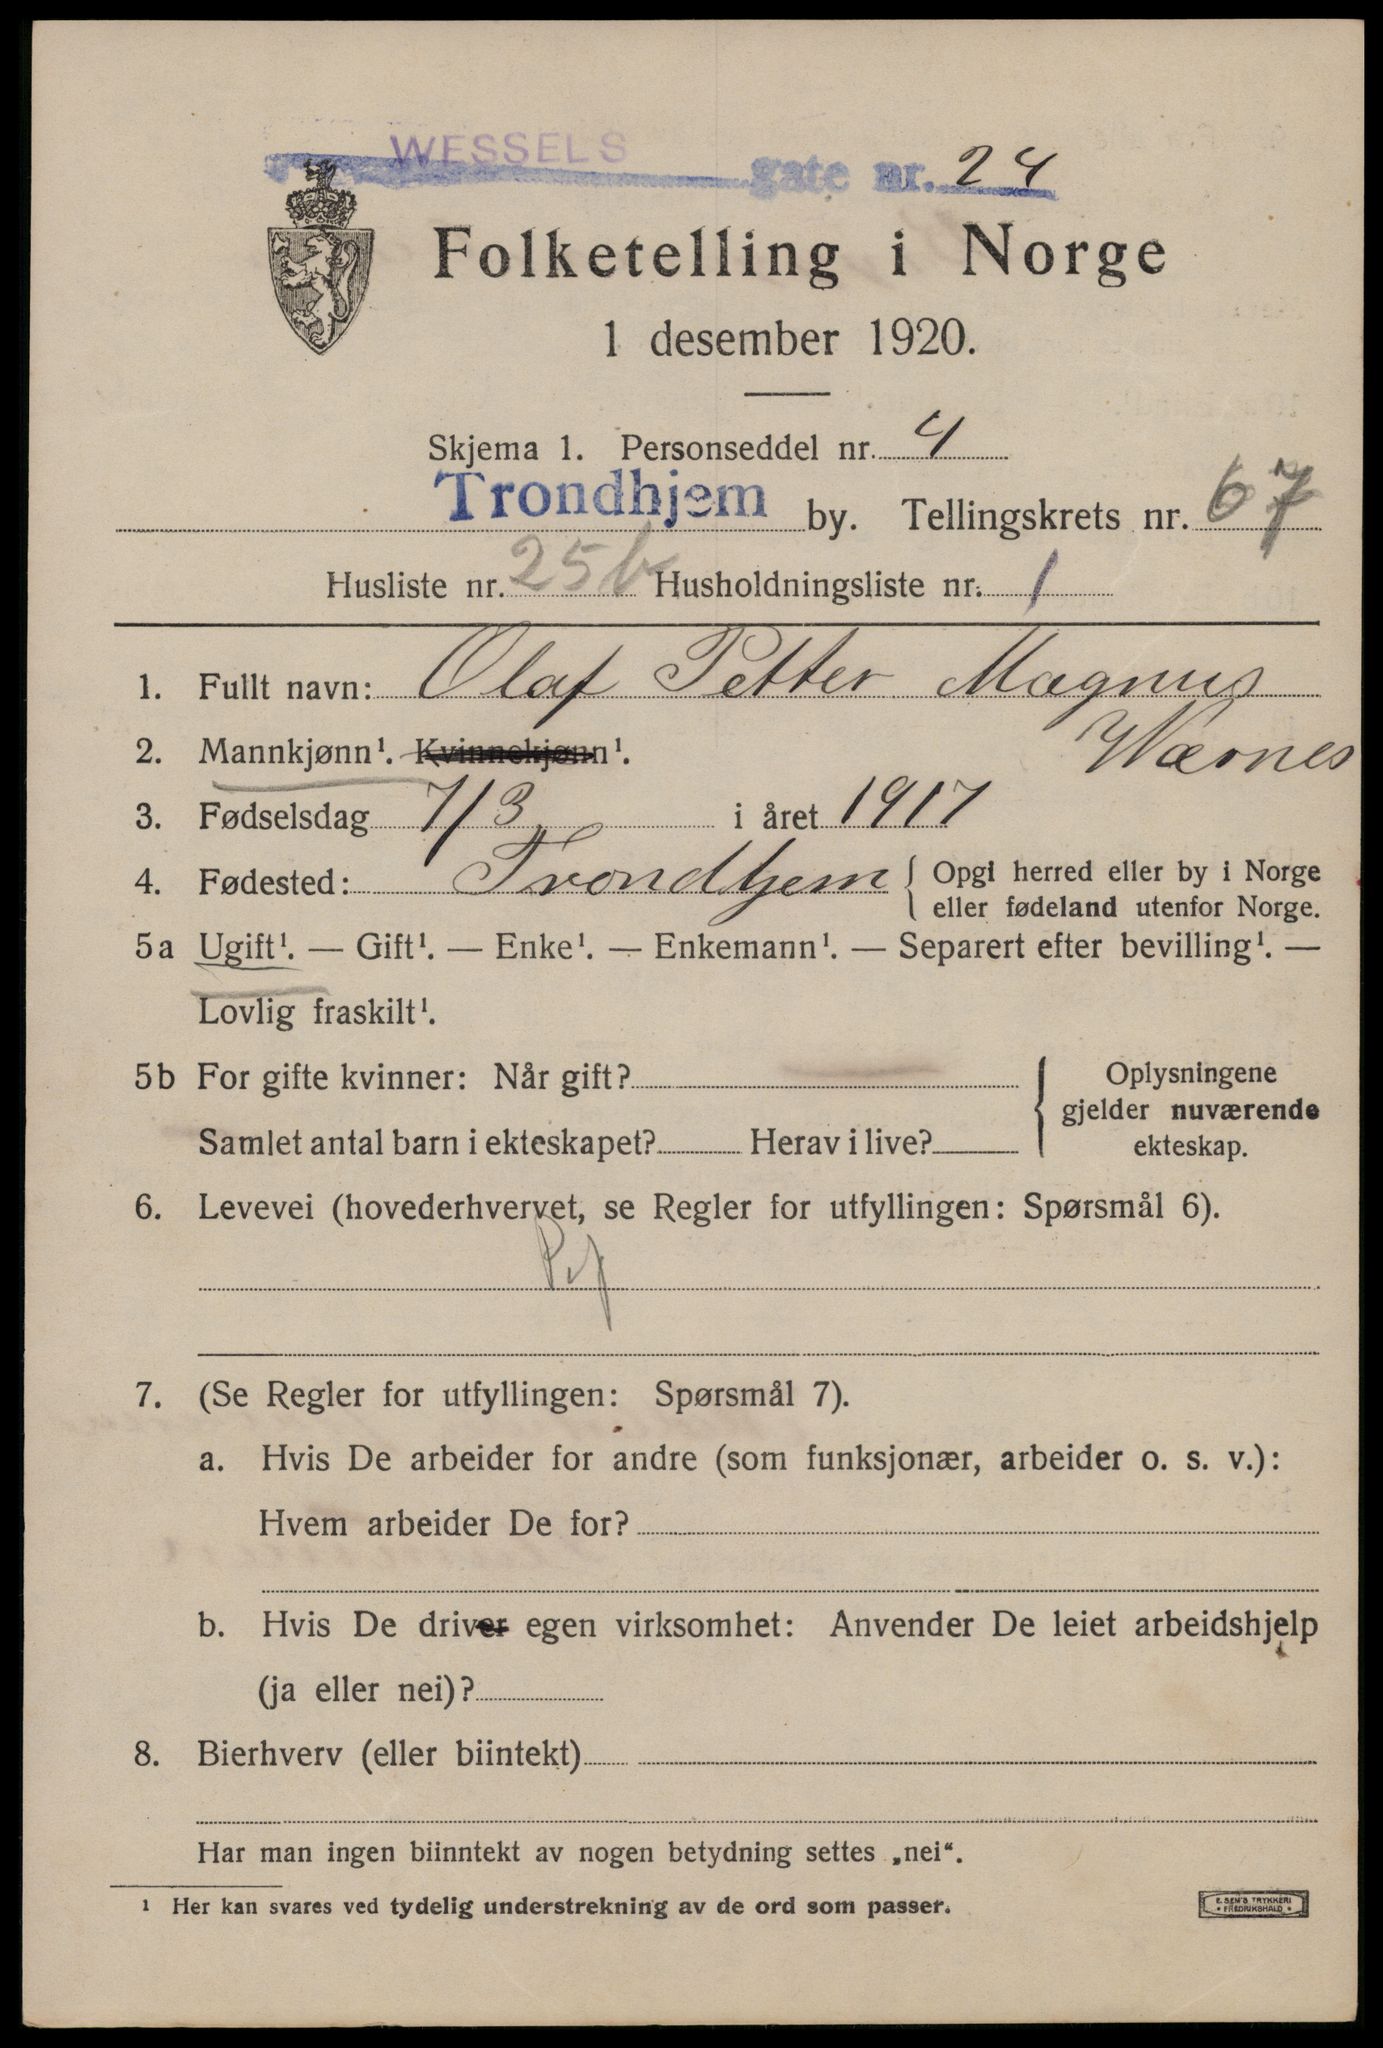 WESSELS gate nr. 24
Folketelling i Norge
1 desember 1920.
Skjema 1. Personseddel nr. 4
Trondhjem by. Tellingskrets nr. 67
Husliste nr. 25b Husholdningsliste nr. 1
1. Fullt navn: Olaf Petter Magnus
Wærnes
2. Mannkjønn¹. Kvinnekjønn¹.
3. Fødselsdag 7/3 i året 1917
4. Fødested: Trondhjem { Opgi herred eller by i Norge
eller fødeland utenfor Norge.
5a Ugift¹. — Gift¹. — Enke¹. — Enkemann¹. — Separert efter bevilling¹. —
Lovlig fraskilt¹.
5b For gifte kvinner: Når gift? { Oplysningene
gjelder nuværende
Samlet antal barn i ekteskapet? Herav i live? ekteskap.
6. Levevei (hovederhvervet, se Regler for utfyllingen: Spørsmål 6).
7. (Se Regler for utfyllingen: Spørsmål 7).
a. Hvis De arbeider for andre (som funksjonær, arbeider o. s. v.):
Hvem arbeider De for?
b. Hvis De driver egen virksomhet: Anvender De leiet arbeidshjelp
(ja eller nei)?
8. Bierhverv (eller biintekt)
Har man ingen biinntekt av nogen betydning settes „nei“.
¹ Her kan svares ved tydelig understrekning av de ord som passer.
E. SEM'S TRYKKERI
• FREDRIKSHALD •